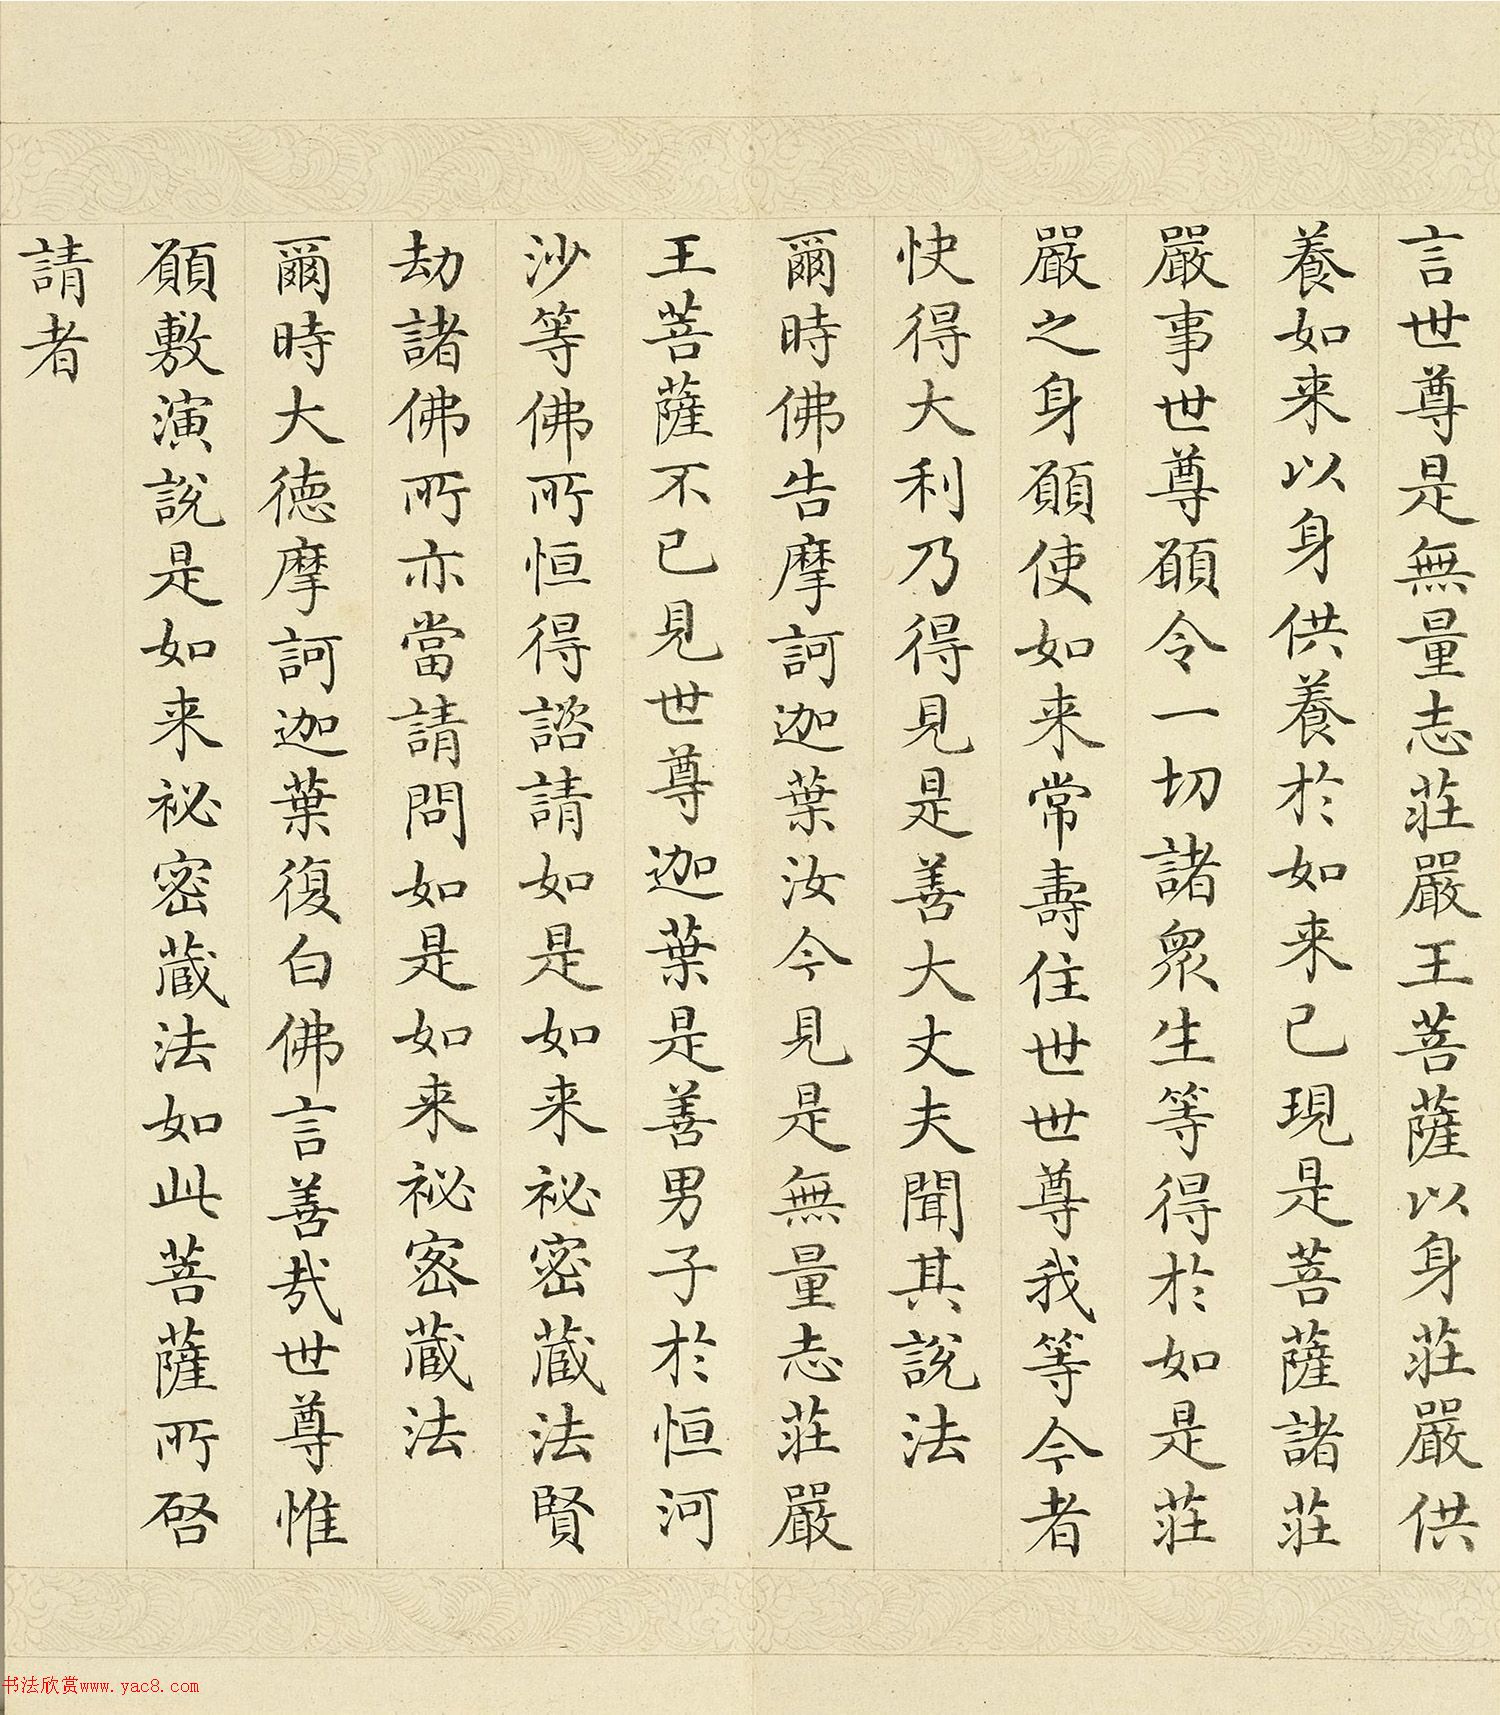 言世尊是無量志莊嚴王菩薩以身莊嚴供
養如来以身供養於如来已現是菩薩諸莊
嚴事世尊願令一切諸眾生等得於如是莊
嚴之身願使如来常壽住世世尊我等今者
快得大利乃得見是善大丈夫聞其說法
爾時佛告摩訶迦葉汝今見是無量志莊嚴
王菩薩不已見世尊迦葉是善男子於恒河
沙等佛所恒得諮請如是如来祕密藏法賢
劫諸佛所亦當請問如是如来祕密藏法
爾時大德摩訶迦葉復白佛言善哉世尊惟
願敷演說是如来祕密藏法如此菩薩所啓
請者
书法欣赏www.yac8.com